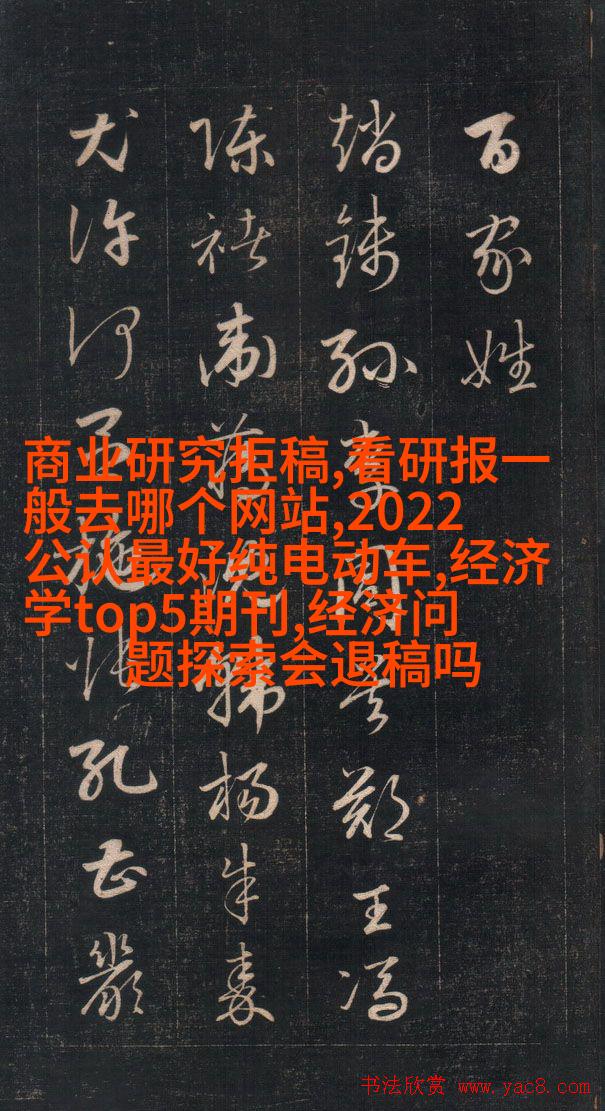 百家姓
趙錢孫李周吳鄭王馮
陳褚衛蔣沈韓楊朱秦
尤許何呂施張孔曹嚴
商业研究拒稿,看研报一
般去哪个网站,2022
公认最好纯电动车,经济
学top5期刊,经济问
题探索会退稿吗
书法欣赏 www.yac8.com